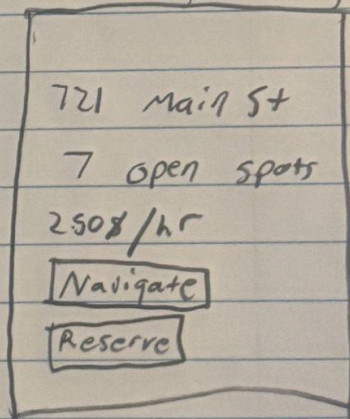 721 Main St
7 open spots
250$/hr
Navigate
Reserve